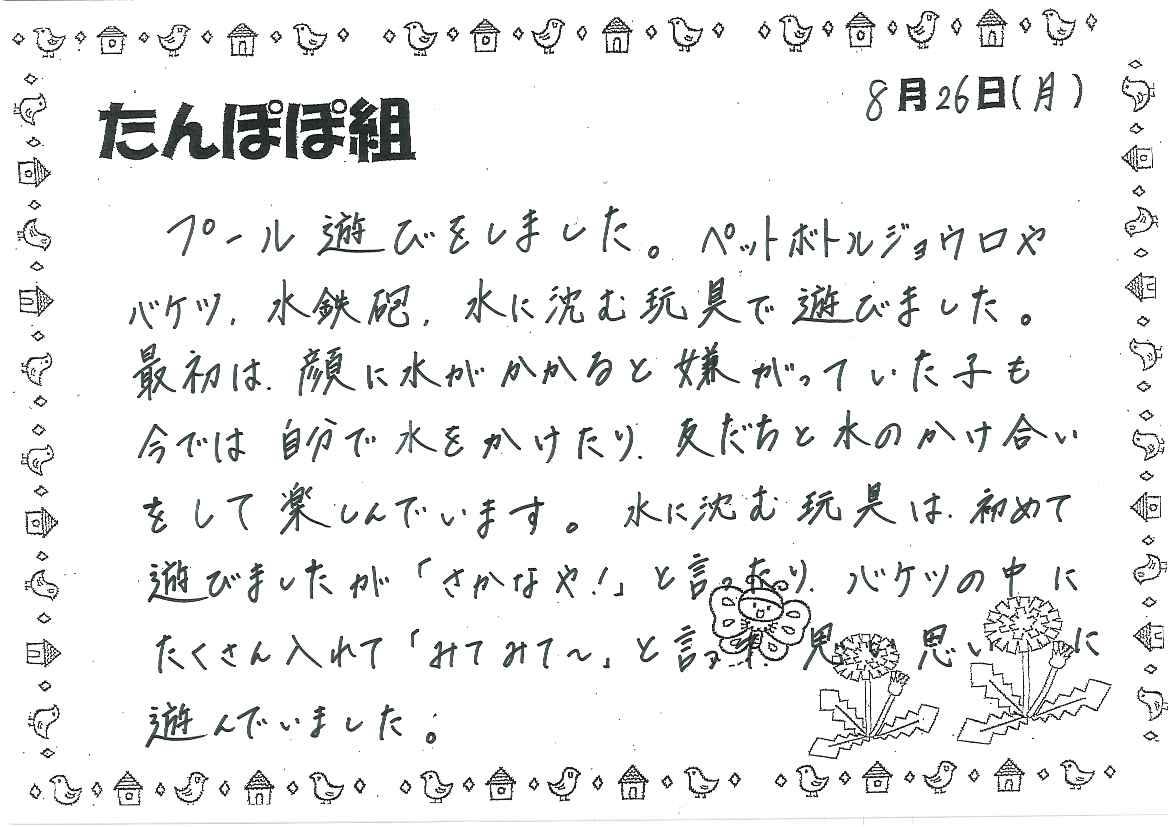 8月26日(月)
たんぽぽ組
プール遊びをしました。ペットボトルジョウロや
バケツ、水鉄砲、水に沈む玩具で遊びました。
最初は、顔に水がかかると嫌がっていた子も
今では自分で水をかけたり、友だちと水のかけ合い
をして楽しんでいます。水に沈む玩具は、初めて
遊びましたが「さかなや!」と言ったり、バケツの中に
たくさん入れて「みてみて〜」と言 思い に
遊んでいました。